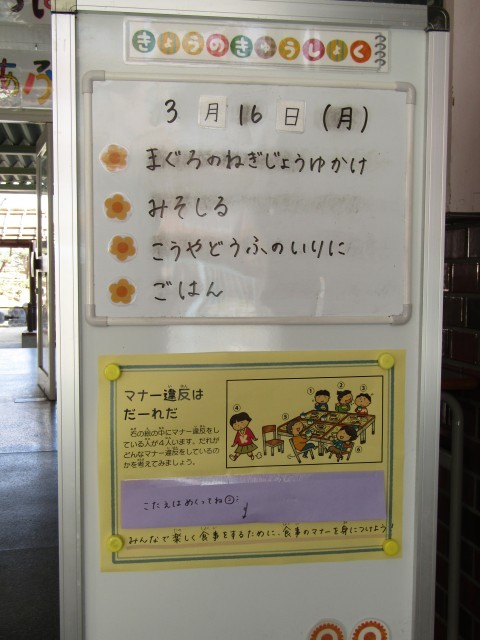 きょうのきゅうしょく
3月16日(月)
まぐろのねぎじょうゆかけ
みそしる
こうやどうふのいりに
ごはん
マナー違反は
だーれだ
右の絵の中にマナー違反をし
ている人が4人います。だれが
どんなマナー違反をしているの
かを考えてみましょう。
① ② ③
④ ⑤
⑥
こたえはめくってね
みんなで楽しく食事をするために、食事のマナーを身につけよう!